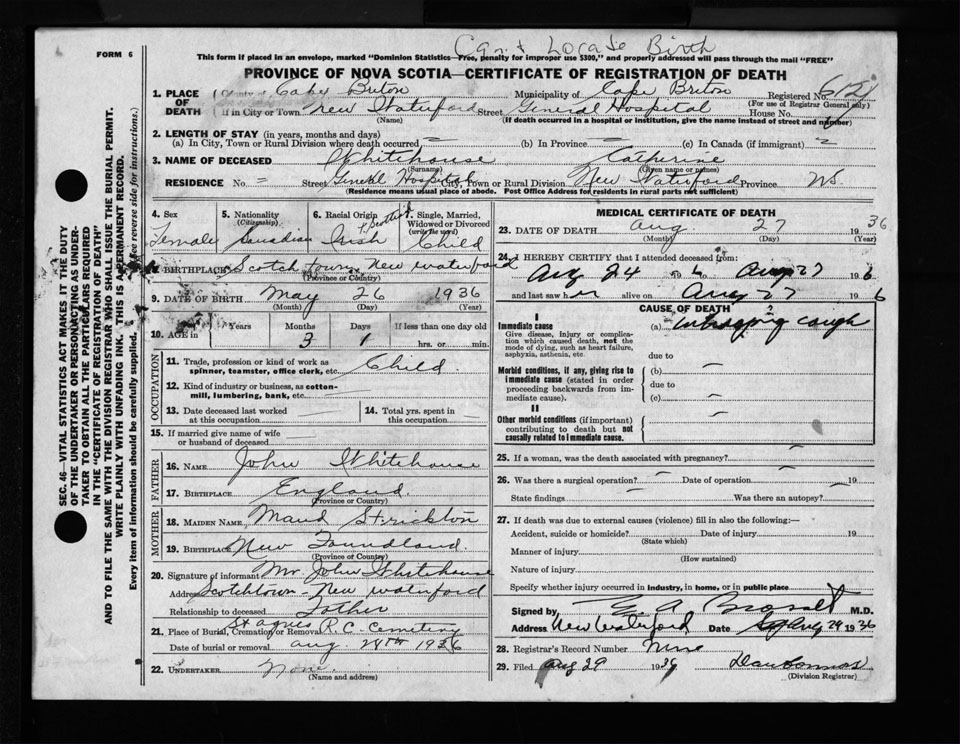 Can't Locate Birth
FORM 6
This form if placed in an envelope, marked "Dominion Statistics—Free, penalty for improper use $300," and properly addressed will pass through the mail "FREE"
PROVINCE OF NOVA SCOTIA—CERTIFICATE OF REGISTRATION OF DEATH
1. PLACE OF DEATH County of Cape Breton Municipality of Cape Breton Registered No.
(For use of Registrar General only)
If in City or Town New Waterford Street General Hospital House No.
(Name) (If death occurred in a hospital or institution, give the name instead of street and number)
2. LENGTH OF STAY (in years, months and days)
(a) In City, Town or Rural Division where death occurred (b) In Province (c) In Canada (if immigrant)
3. NAME OF DECEASED Whitehouse Catherine
(Surname) (Given name or names)
RESIDENCE No. Street General Hospital City, Town or Rural Division New Waterford Province NS.
(Residence means usual place of abode. Post Office Address for residents in rural parts not sufficient)
4. Sex Female
5. Nationality (Citizenship) Canadian
6. Racial Origin Irish & Scottish
7. Single, Married, Widowed or Divorced (write the word) Child
8. BIRTHPLACE Scotch town, New waterford
(Province or Country)
9. DATE OF BIRTH May 26 1936
(Month) (Day) (Year)
10. AGE in Years Months 3 Days 1 If less than one day old hrs. or min.
OCCUPATION
11. Trade, profession or kind of work as spinner, teamster, office clerk, etc. Child.
12. Kind of industry or business, as cotton-mill, lumbering, bank, etc.
13. Date deceased last worked at this occupation
14. Total yrs. spent in this occupation
15. If married give name of wife or husband of deceased
FATHER
16. NAME John Whitehouse
17. BIRTHPLACE England.
(Province or Country)
MOTHER
18. MAIDEN NAME Maud Strickton
19. BIRTHPLACE New Foundland.
(Province or Country)
20. Signature of informant Mr. John Whitehouse
Address Scotchtown - New waterford
Relationship to deceased Father
21. Place of Burial, Cremation or Removal St agnes R.C. Cemetery
Date of burial or removal aug. 28th 1936
22. UNDERTAKER None.
(Name and address)
MEDICAL CERTIFICATE OF DEATH
23. DATE OF DEATH Aug 27 1936
(Month) (Day) (Year)
24. I HEREBY CERTIFY that I attended deceased from:
Aug 24 36 to Aug 27 1936
and last saw her alive on Aug 27 1936
CAUSE OF DEATH
I
Immediate cause
Give disease, injury or complication which caused death, not the mode of dying, such as heart failure, asphyxia, asthenia, etc.
(a) Whooping cough
due to
Morbid conditions, if any, giving rise to immediate cause (stated in order proceeding backwards from immediate cause).
(b)
due to
(c)
II
Other morbid conditions (if important) contributing to death but not causally related to immediate cause.
25. If a woman, was the death associated with pregnancy?
26. Was there a surgical operation? Date of operation 19
State findings Was there an autopsy?
27. If death was due to external causes (violence) fill in also the following:—
Accident, suicide or homicide? Date of injury 19
(State which)
Manner of injury
(How sustained)
Nature of injury
Specify whether injury occurred in industry, in home, or in public place
Signed by M.D.
Address New Waterford Date Aug 29 1936
28. Registrar's Record Number
29. Filed Aug 29 1936
(Division Registrar)
SEC. 46—VITAL STATISTICS ACT MAKES IT THE DUTY OF THE UNDERTAKER OR PERSON ACTING AS UNDERTAKER TO OBTAIN ALL THE PARTICULARS REQUIRED IN THE "CERTIFICATE OF REGISTRATION OF DEATH" AND TO FILE THE SAME WITH THE DIVISION REGISTRAR WHO SHALL ISSUE THE BURIAL PERMIT.
WRITE PLAINLY WITH UNFADING INK. THIS IS A PERMANENT RECORD.
Every item of information should be carefully supplied. (See reverse side for instructions.)